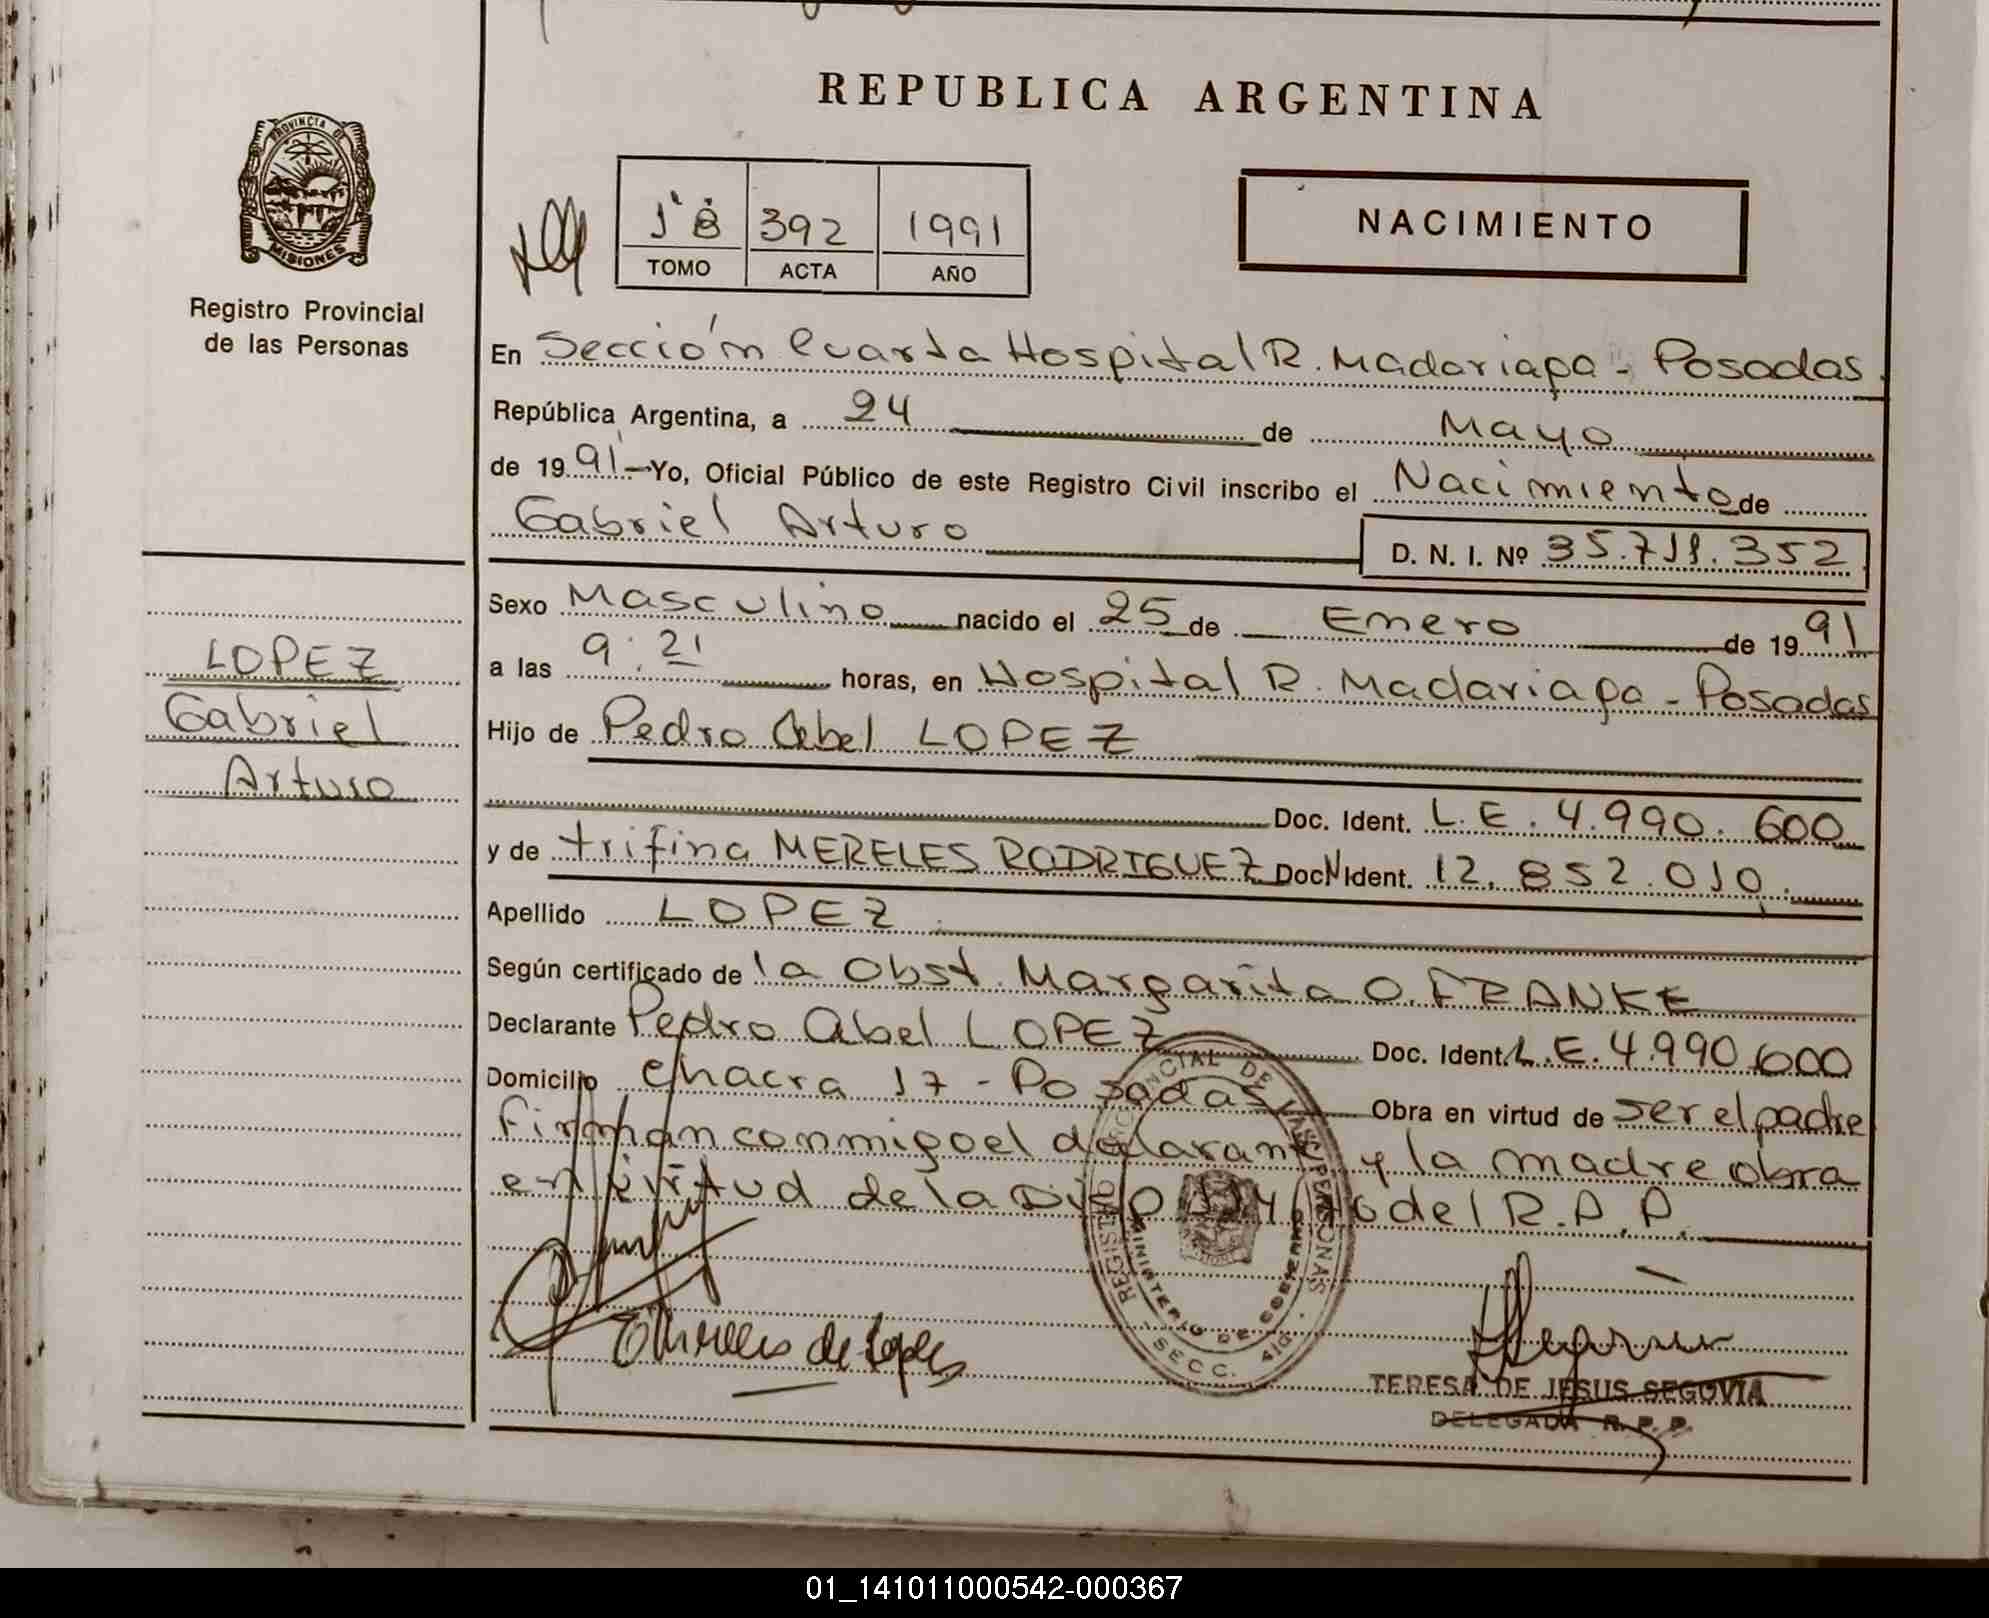 REPUBLICA ARGENTINA
PROVINCIA DE
MISIONES
Registro Provincial
de las Personas
1º B 392 1991
TOMO ACTA AÑO
NACIMIENTO
En Sección Cuarta Hospital R. Madariaga - Posadas.
República Argentina, a 24 de Mayo
de 1991.- Yo, Oficial Público de este Registro Civil inscribo el Nacimiento de
Gabriel Arturo D. N. I. Nº 35.711.352
Sexo Masculino nacido el 25 de Enero de 1991
a las 9:21 horas, en Hospital R. Madariaga - Posadas
Hijo de Pedro Abel LOPEZ
Doc. Ident. L.E. 4.990.600
y de trifina MERELES RODRIGUEZ Doc. Ident. 12.852.010.
Apellido LOPEZ
Según certificado de la Obst. Margarita O. FRANKE
Declarante Pedro Abel LOPEZ Doc. Ident. L.E. 4.990.600
Domicilio Chacra 17 - Posadas Obra en virtud de ser el padre
Firman conmigo el declarante y la madre obra
en virtud de la Disp del R.P.P.
LOPEZ
Gabriel
Arturo
REGISTRO PROVINCIAL DE LAS PERSONAS
MINISTERIO DE GOBIERNO
SECC. 4ta.
Mereles de Lopez
TERESA DE JESUS SEGOVIA
DELEGADA R. P. P.
01_141011000542-000367